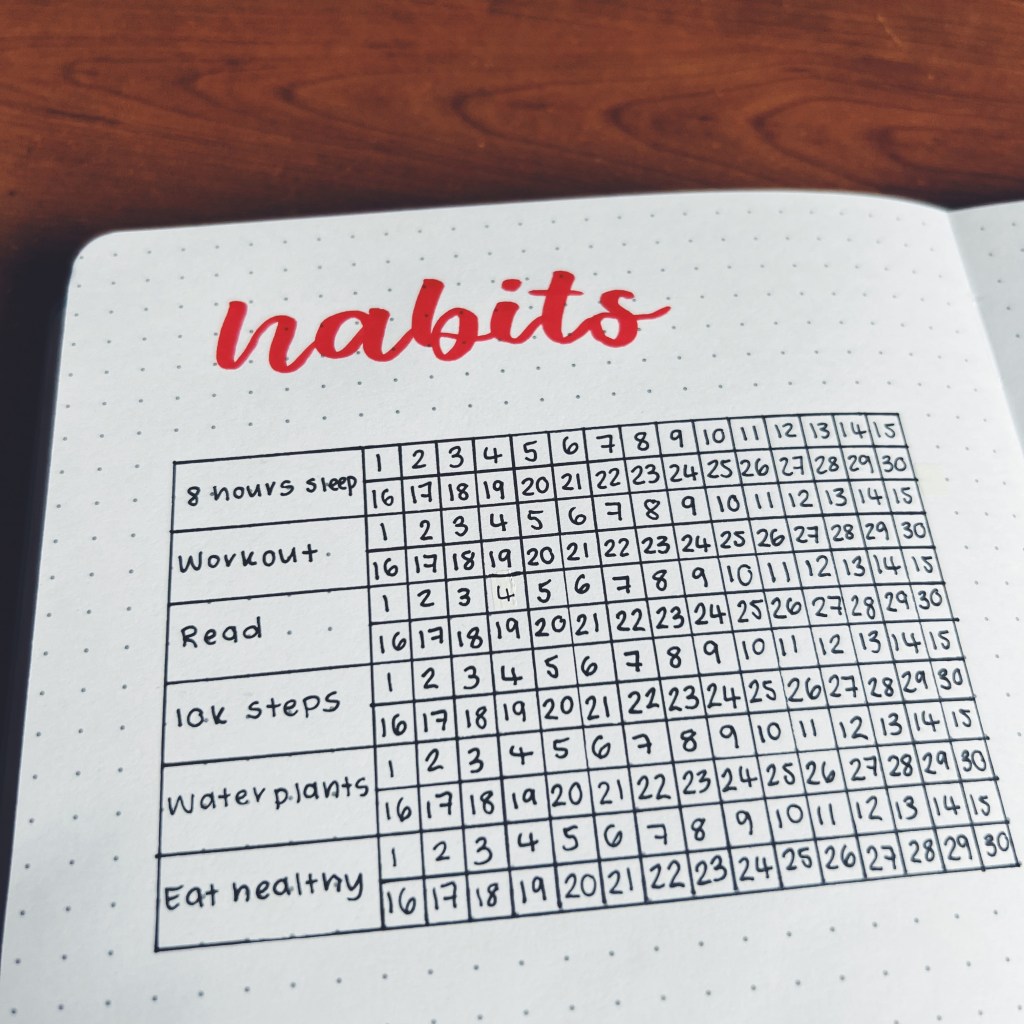 habits
8 hours sleep 1 2 3 4 5 6 7 8 9 10 11 12 13 14 15
16 17 18 19 20 21 22 23 24 25 26 27 28 29 30
Workout 1 2 3 4 5 6 7 8 9 10 11 12 13 14 15
16 17 18 19 20 21 22 23 24 25 26 27 28 29 30
Read 1 2 3 4 5 6 7 8 9 10 11 12 13 14 15
16 17 18 19 20 21 22 23 24 25 26 27 28 29 30
10k steps 1 2 3 4 5 6 7 8 9 10 11 12 13 14 15
16 17 18 19 20 21 22 23 24 25 26 27 28 29 30
Water plants 1 2 3 4 5 6 7 8 9 10 11 12 13 14 15
16 17 18 19 20 21 22 23 24 25 26 27 28 29 30
Eat healthy 1 2 3 4 5 6 7 8 9 10 11 12 13 14 15
16 17 18 19 20 21 22 23 24 25 26 27 28 29 30